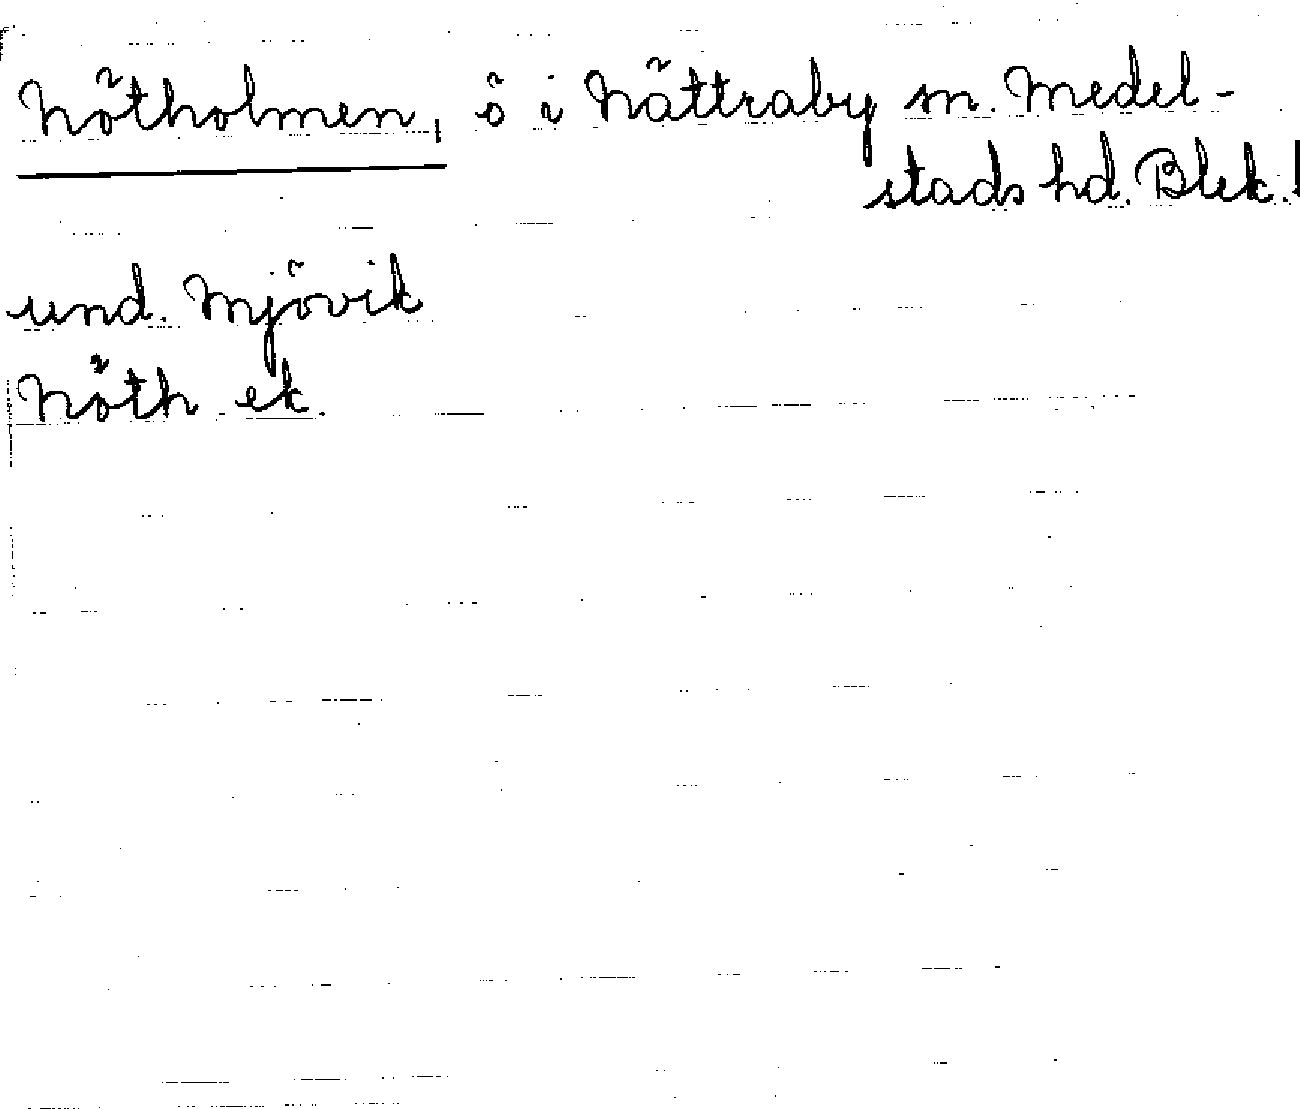 Nötholmen, ö i Nättraby sn. Medel-
stads hd. Blek.
und. Mjövik
Nöth ek.